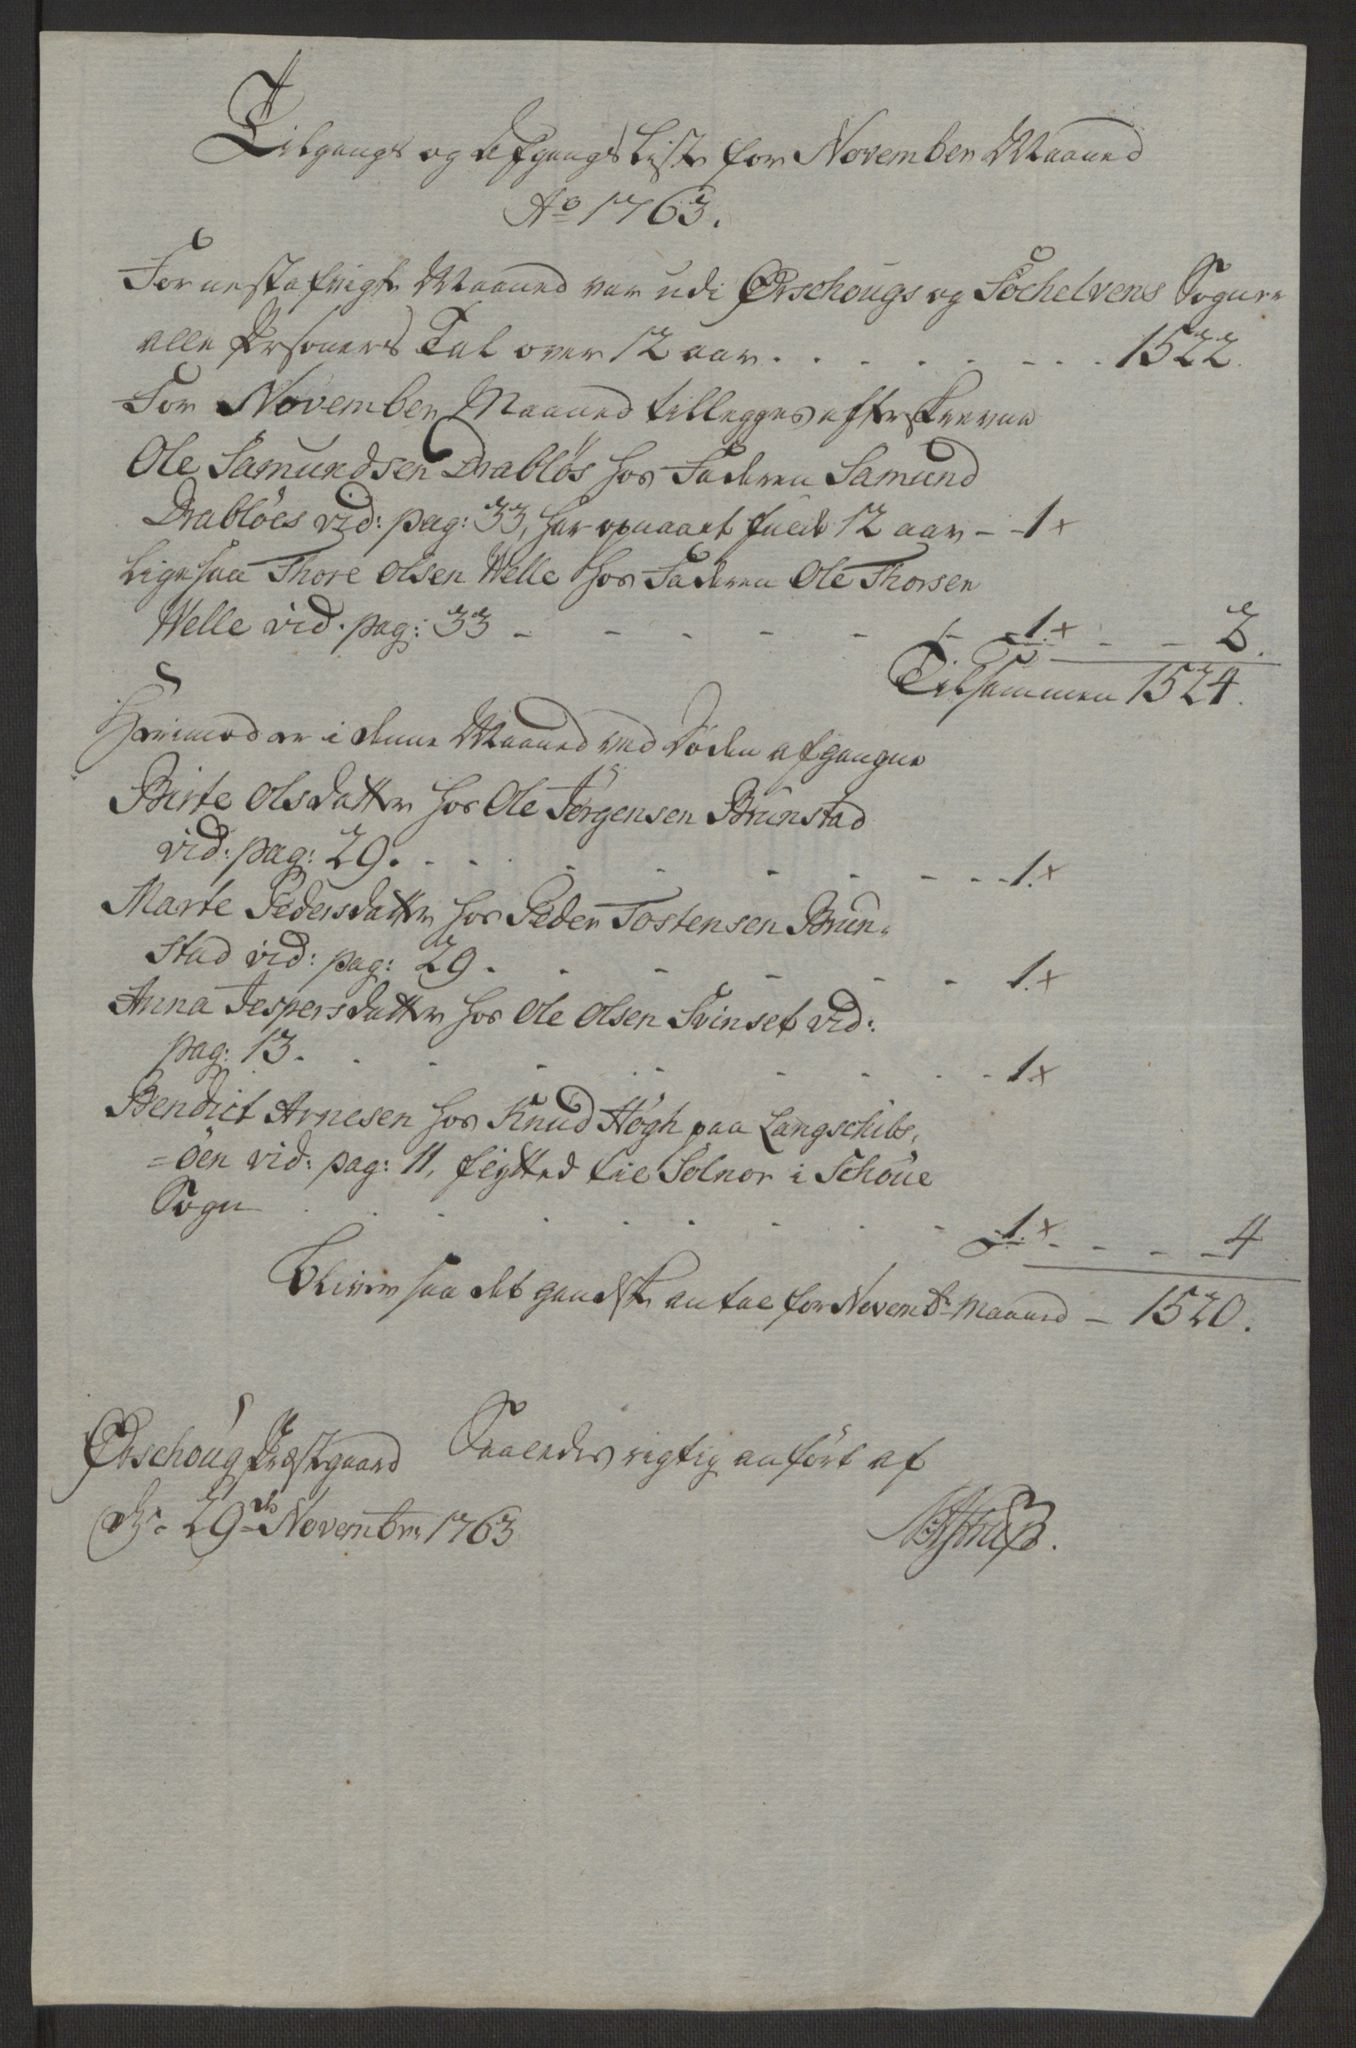 Tilgangs og Afgangs Liste for November Maaned
Ao 1763.
For nestafvigte Maaned var udi Ørschougs og Söchelvens Sogner
alle Persohners Tal over 12 aar . . . . . . . . . 1522.
For November Maaned tillegges efterskrevne
Ole Samundsen Drabløs hos Faderen Samund
Drabløes vid: pag: 33, har opnaaet fulde 12 aar - 1 +
Ligesaa Thore Olsen Welle hos Faderen Ole Thorsen
Welle vid. pag: 33 - - - - - - - 1. + - - 2.
Tilsammen 1524.
Herimod er i denne Maaned ved Döden afgangne
Birte Olsdatter hos Ole Jörgensen Brunstad
vid: pag: 29. - - - - - - - - 1. +
Marte Pedersdatter hos Peder Tostensen Brun-
stad vid: pag: 29. - - - - - 1. +
Anna Jespersdatter hos Ole Olsen Svinset vid:
pag: 13. . - - - - - - - 1. +
Bendict Arnesen hos Knud Høgh paa Langschibs,
=öen vid: pag: 11, flytted til Solnor i Schoue
Sogn . . . . . . . . - 1. + - - - 4
Bliver saa det gandske antal for Novembr Maaned - 1520.
Ørschoug Præstgaard Saaledes rigtig anført af
d. 29de Novembr: 1763